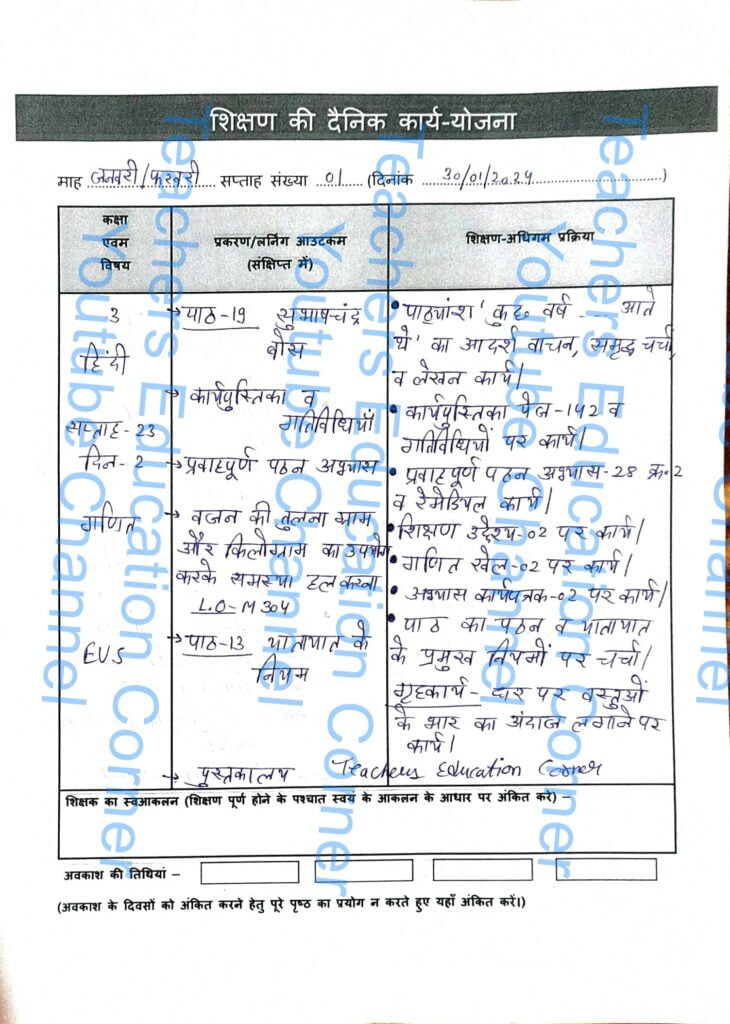 शिक्षण की दैनिक कार्य-योजना
माह जनवरी/फरवरी सप्ताह संख्या 01 (दिनांक 30/01/2024)
कक्षा
एवम
विषय
प्रकरण/लर्निंग आउटकम
(संक्षिप्त में)
शिक्षण-अधिगम प्रक्रिया
3
हिंदी
सप्ताह-23
दिन-2
→ पाठ-19 सुभाषचंद्र
बोस
→ कार्यपुस्तिका व
गतिविधियाँ
→ प्रवाहपूर्ण पठन अभ्यास
• पाठ्यांश 'कुछ वर्ष ---- आते
थे' का आदर्श वाचन, समृद्ध चर्चा,
व लेखन कार्य।
• कार्यपुस्तिका पेज-142 व
गतिविधियों पर कार्य।
• प्रवाहपूर्ण पठन अभ्यास-28 क्र.2
व रेमेडियल कार्य।
गणित
→ वजन की तुलना ग्राम
और किलोग्राम का उपयोग
करके समस्या हल करना
L.O-M304
• शिक्षण उद्देश्य-02 पर कार्य।
• गणित खेल-02 पर कार्य।
• अभ्यास कार्यपत्रक-02 पर कार्य।
EVS
→ पाठ-13 यातायात के
नियम
• पाठ का पठन व यातायात
के प्रमुख नियमों पर चर्चा।
गृहकार्य - घर पर वस्तुओं
के भार का अंदाज लगाने पर
कार्य।
→ पुस्तकालय
Teachers Education Corner
शिक्षक का स्वआकलन (शिक्षण पूर्ण होने के पश्चात स्वयं के आकलन के आधार पर अंकित करे) –
अवकाश की तिथियां –
(अवकाश के दिवसों को अंकित करने हेतु पूरे पृष्ठ का प्रयोग न करते हुए यहाँ अंकित करें।)
Teachers Education Corner
Youtube Channel
Teachers Education Corner
Youtube Channel
Teachers Education Corner